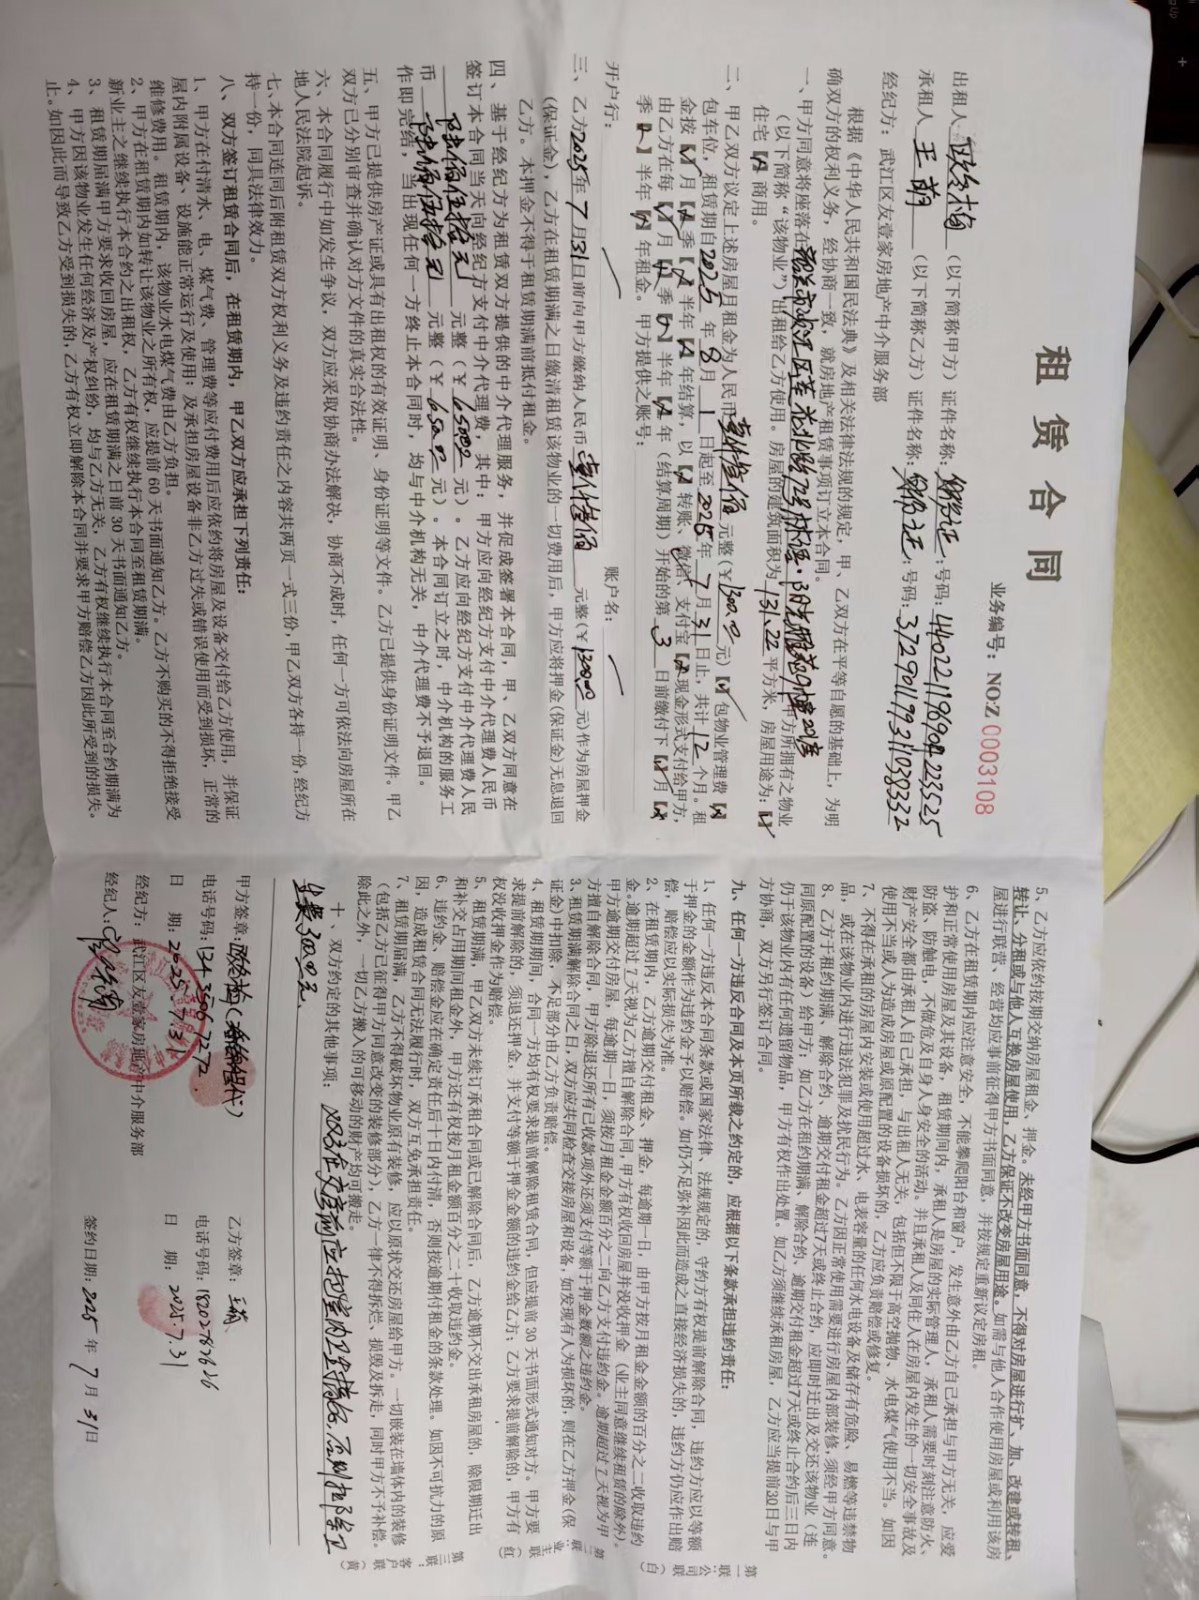 租 赁 合 同
业务编号：NO:Z 0003108
出租人 （以下简称甲方）证件名称：身份证 号码：440221196904223525
承租人 王萌 （以下简称乙方）证件名称：身份证 号码：372901199311038332
经纪方：武江区友壹家房地产中介服务部
根据《中华人民共和国民法典》及相关法律法规的规定，甲、乙双方在平等自愿的基础上，为明
确双方的权利义务，经协商一致，就房地产租赁事项订立本合同。
一、甲方同意将座落在 甲方所拥有之物业
（以下简称“该物业”）出租给乙方使用。房屋的建筑面积为131.22平方米，房屋用途为：【√】
住宅【 】商用。
二、甲乙双方议定上述房屋月租金为人民币壹仟叁佰元整（￥1300.00元）【√】包物业管理费【 】
包车位，租赁期自2025年8月1日起至 年7月31日止，共计12个月。租
金按【√】月【 】季【 】半年【 】年结算，以【 】转账、微信、支付宝【 】现金形式支付给甲方，
由乙方在每【√】月【 】季【 】半年【 】年（结算周期）开始的第3日前缴付下【 】月【 】
季【 】半年【 】年租金。甲方提供之账号：
开户行： 账户名：
三、乙方2025年7月31日前向甲方缴纳人民币壹仟叁佰元整（￥1300.00元）作为房屋押金
（保证金），乙方在租赁期满之日缴清租赁该物业的一切费用后，甲方应将押金（保证金）无息退回
乙方。本押金不得于租赁期满前抵付租金。
四、基于经纪方为租赁双方提供的中介代理服务，并促成签署本合同，甲、乙双方同意在
签订本合同当天向经纪方支付中介代理费，其中：甲方应向经纪方支付中介代理费人民币
陆佰伍拾元元整（￥650.00元）。乙方应向经纪方支付中介代理费人民
币陆佰伍拾元元整（￥650.00元）。本合同订立之时，中介机构的服务工
作即完结，当出现任何一方终止本合同时，均与中介机构无关，中介代理费不予退回。
五、甲方已提供房产证或具有出租权的有效证明、身份证明等文件。乙方已提供身份证明文件。甲乙
双方已分别审查并确认对方文件的真实合法性。
六、本合同履行中如发生争议，双方应采取协商办法解决，协商不成时，任何一方可依法向房屋所在
地人民法院起诉。
七、本合同连同后附租赁双方权利义务及违约责任之内容共两页一式三份，甲乙双方各持一份，经纪方
持一份，同具法律效力。
八、双方签订租赁合同后，在租赁期内，甲乙双方应承担下列责任：
1、甲方在付清水、电、煤气费、管理费等应付费用后应依约将房屋及设备交付给乙方使用，并保证
屋内附属设备、设施能正常运行及使用；及承担房屋设备非乙方过失或错误使用而受到损坏，正常的
维修费用。租赁期内，该物业水电煤气费由乙方负担。
2、甲方在租赁期内如转让该物业之所有权，应提前60天书面通知乙方。乙方不购买的不得拒绝接受
新业主之继续执行本合约之出租权，乙方有权继续执行本合同至租赁期满。
3、租赁期届满甲方要求收回房屋，应在租赁期满之日前30天书面通知乙方。
4、甲方因该物业发生任何经济及产权纠纷，均与乙方无关，乙方有权继续执行本合同至合约期满为
止。如因此而导致乙方受到损失的，乙方有权立即解除本合同并要求甲方赔偿乙方因此所受到的损失。
5、乙方应依约按期交纳房屋租金、押金。未经甲方书面同意，不得对房屋进行扩、加、改建或转租、
转让、分租或与他人互换房屋使用，乙方保证不改变房屋用途。如需与他人合作使用房屋或利用该房
屋进行联营、经营均应事前征得甲方书面同意，并按规定重新议定房租。
6、乙方在租赁期内应注意安全，不能攀爬阳台和窗户，发生意外由乙方自己承担与甲方无关，应爱
护和正常使用房屋及其设备，租赁期间内，承租人是房屋的实际管理人，承租人需要时刻注意防火、
防盗、防触电，不做危及自身人身安全的活动。并且承租人及同住人在房屋内发生的一切安全事故及
财产安全都由承租人自己承担，与出租人无关，包括但不限于高空抛物、水电煤气使用不当。如因
使用不当或人为造成房屋或原配置的设备损坏的，乙方应负责赔偿或修复。
7、不得在承租的房屋内安装或使用超过水、电表容量的任何水电设备及储存有危险、易燃等违禁物
品，或在该物业内进行违法犯罪及扰民行为。乙方因正常使用需要进行房屋内部装修，须经甲方同意。
8、乙方于租约期满、解除合约、逾期交付租金超过7天或终止合约，应即时迁出及交还该物业（连
同原配置的设备）给甲方；如乙方在租约期满、解除合约、逾期交付租金超过7天或终止合约后三日内
仍于该物业内有任何遗留物品，甲方有权作出处置。如乙方须继续承租房屋，乙方应当提前30日与甲
方协商，双方另行签订合同。
九、任何一方违反合同及本页所载之约定的，应根据以下条款承担违约责任：
1、任何一方违反本合同条款或国家法律、法规规定的，守约方有权提前解除合同，违约方应以等额
于押金的金额作为违约金予以赔偿。如仍不足弥补因此而造成之直接经济损失的，违约方仍应作出赔
偿，赔偿应以实际损失为准。
2、在租赁期内，乙方逾期交付租金、押金，每逾期一日，由甲方按月租金金额的百分之二收取违约
金。逾期超过7天视为乙方擅自解除合同，甲方有权收回房屋并没收押金（业主同意继续租赁的除外）。
甲方逾期交付房屋，每逾期一日，须按月租金金额百分之二向乙方支付违约金。逾期超过7天视为甲
方擅自解除合同，甲方除退还所有已收款项外还须支付等额于押金数额之违约金。
3、租赁期满解除合同之日，双方应共同检查交接房屋和设备，如发现有人为损坏的，则在乙方押金（保
证金）中扣除，不足部分由乙方负责赔偿。
4、租赁期期间，合同一方均有权要求提前解除租赁合同，但应提前30天书面形式通知对方。甲方要
求提前解除的，须退还押金，并支付等额于押金金额的违约金给乙方；乙方要求提前解除的，甲方有
权没收押金作为赔偿。
5、租赁期满，甲乙双方未续订承租合同或已解除合同后，乙方逾期不交出承租房屋的，除限期迁出
和补交占用期间租金外，甲方还有权按月租金额百分之二十收取违约金。
6、违约金、赔偿金应在确定责任后十日内付清，否则按逾期付租金的条款处理。如因不可抗力的原
因，造成租赁合同无法履行时，双方互免承担责任。
7、租赁期届满，乙方不得破坏物业原有装修，应以原状交还房屋给甲方。一切嵌装在墙体内的装修
（包括乙方已征得甲方同意改变的装修部分），乙方一律不得拆烂、损毁及拆走，同时甲方不予补偿。
除此之外，一切乙方搬入的可移动的财产均可搬走。
十、双方约定的其他事项： 退房交房前应把室内卫生搞好，否则扣除卫
生费300.00元。
甲方签章： 乙方签章：王萌
电话号码：13435067272 电话号码：18202787626
日 期：2025.7.31 日 期：2025.7.31
经纪方：武江区友壹家房地产中介服务部
经纪人： 签约日期：2025年7月31日
第一联：公司联（白）
第二联：业主联（红）
第三联：客户联（黄）